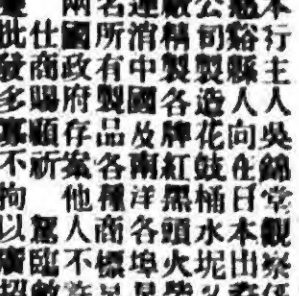 本行主人吳錦堂觀察
谿縣人向在日本出
公司製造花鼓桶水坭
廠精製各牌紅黑頭火
運消中國及南洋各埠
名所有製品各種商標
兩國政府存案他人不
仕商賜顧祈 駕臨
批發多寡不拘以廣招